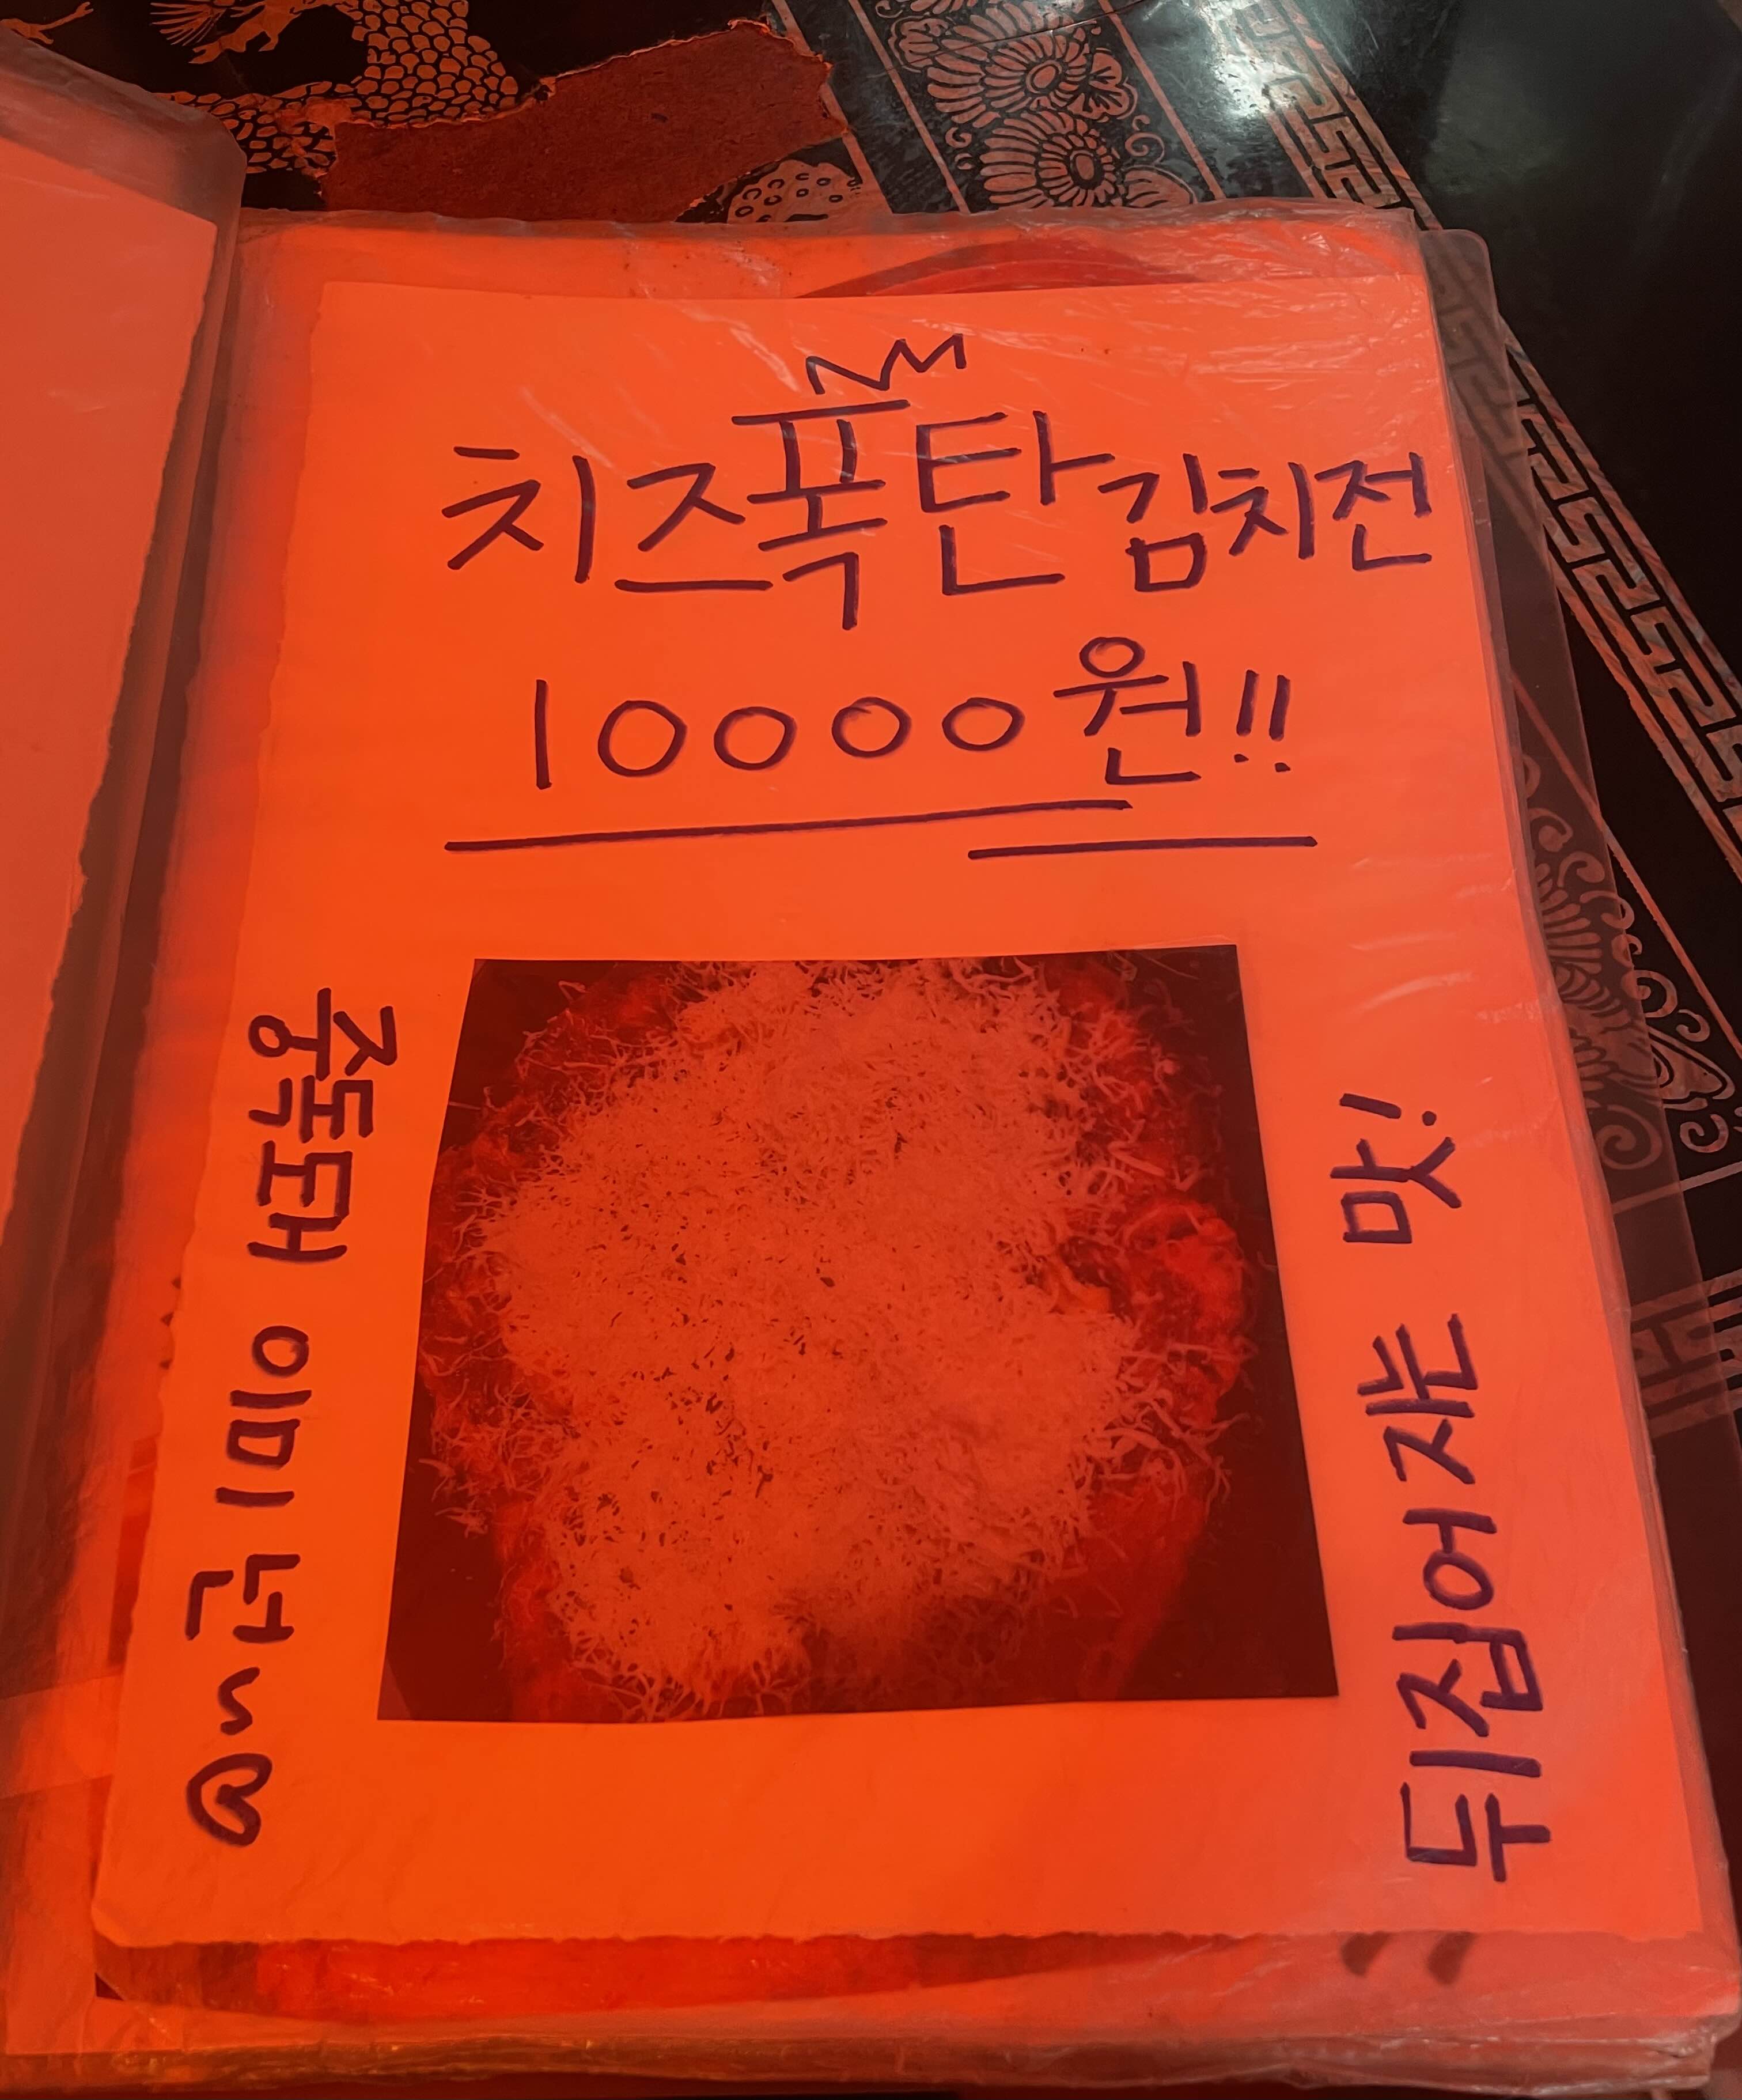 치즈폭탄김치전
10000원!!
중독돼 이미 넌~♡
뒤집어지는 맛!